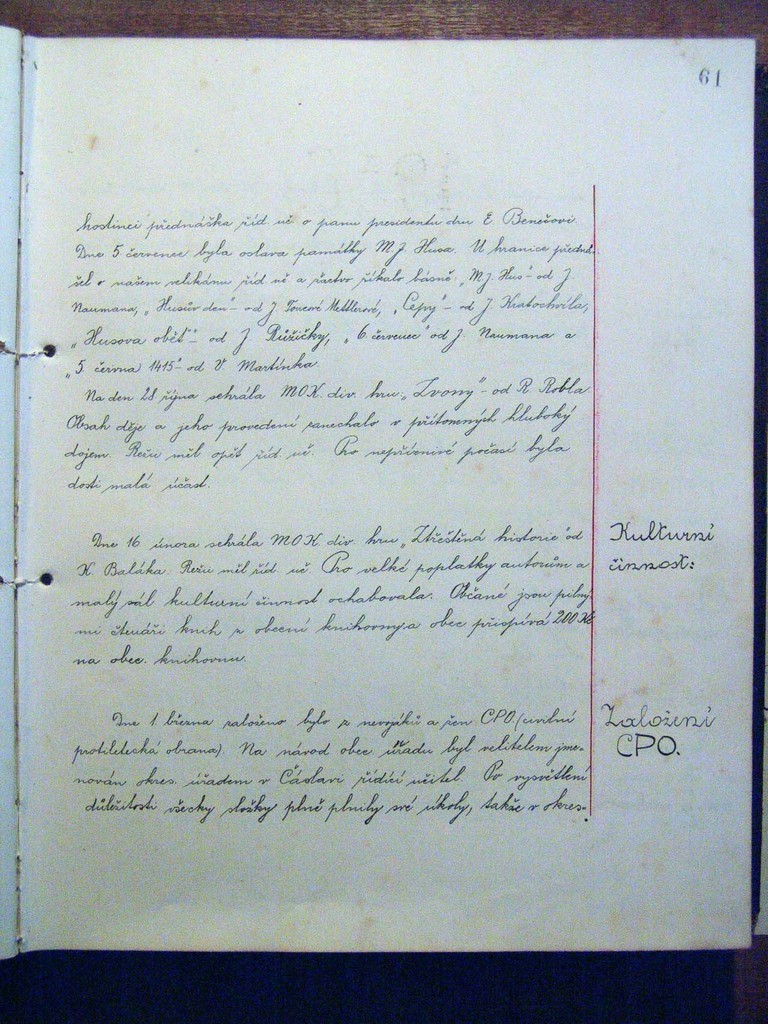 61
hostinci přednáška říd. uč. o panu presidentu dru E. Benešovi.
Dne 5 červenec byla oslava památky M J Husa. U hranice předná-
šel o našem velikánu říd uč a žactvo říkalo básně: „M J. Hus" - od J.
Naumana, „Husův den" - od J. Mettlerové, „Cepy" - od J. Kratochvíla,
„Husova oběť" - od J Růžičky, „6. červenec" od J. Naumana a
„5. června 1415" - od V Martínka.
Na den 28 října sehrála MOK. div. hru „Zvony" - od R Robla
Obsah děje a jeho provedení zanechalo v přítomných hluboký
dojem. Režii měl opět říd. uč. Pro nepříznivé počasí byla
dosti malá účast.
Dne 16 února sehrála MOK. div. hru „Ztřeštěná historie" od
K. Baláka. Režii měl říd. uč. Pro velké poplatky autorům a
malý sál kulturní činnost ochabovala. Občané jsou pilný-
mi čtenáři knih z obecní knihovny a obec přispívá 200 Kč
na obec. knihovnu.
Kulturní
činnost:
Dne 1 března založeno bylo z nevojáků a žen CPO (civilní
protiletecká obrana). Na návod obec. úřadu byl velitelem jme-
nován okres. úřadem v Čáslavi řídící učitel. Po vysvětlení
důležitosti všecky složky plně plnily své úkoly, takže v okres-
Založení
CPO.